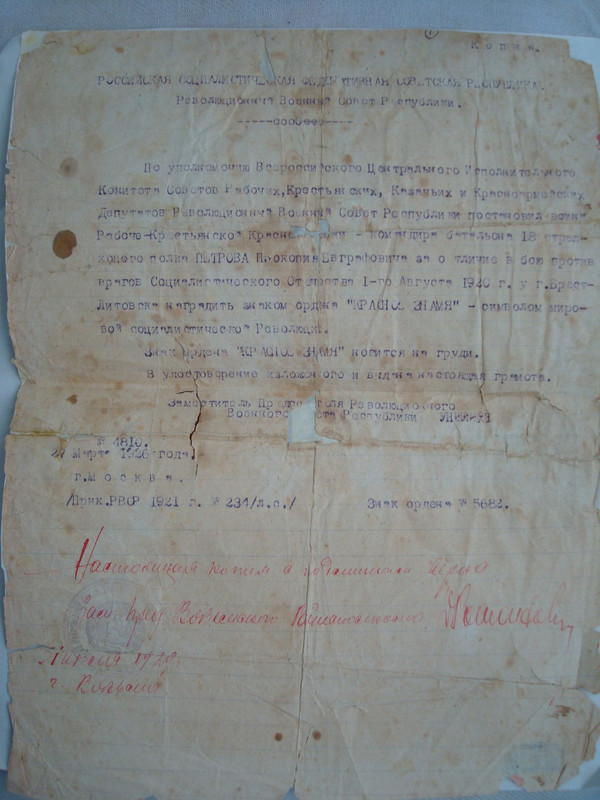 Копия.
РОССИЙСКАЯ СОЦИАЛИСТИЧЕСКАЯ ФЕДЕРАТИВНАЯ СОВЕТСКАЯ РЕСПУБЛИКА.
Революционный Военный Совет Республики.
По уполномочию Всероссийского Центрального Исполнительного
Комитета Советов Рабочих, Крестьянских, Казачьих и Красноармейских
Депутатов Революционный Военный Совет Республики постановил воина
Рабоче-Крестьянской Красной - командира батальона 18 стрел-
кового полка ПЕТРОВА Прокопия Евграфовича за отличие в бою против
врагов Социалистического Отечества 1-го Августа 1920 г. у г.Брест-
Литовска наградить знаком ордена "КРАСНОЕ ЗНАМЯ" - символом миро-
вой социалистической Революции.
Знак ордена "КРАСНОЕ ЗНАМЯ" носится на груди.
В удостоверение изложенного и выдана настоящая грамота.
Заместитель Председателя Революционного
Военного Совета Республики
№ 4810.
27 Марта 1926 года.
г.Москва.
/Прик.РВСР 1921 г. № 234/л.с./ Знак ордена № 5682.
Настоящая копия с подлинным верна
Зам. Пред.
1929
г.